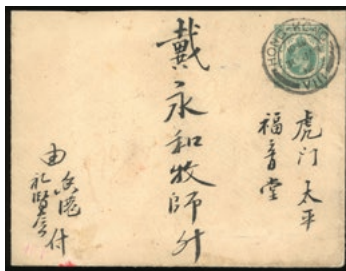 HONG KONG
虎门太平
福音堂
戴永和牧師升
由香港
礼賢会付